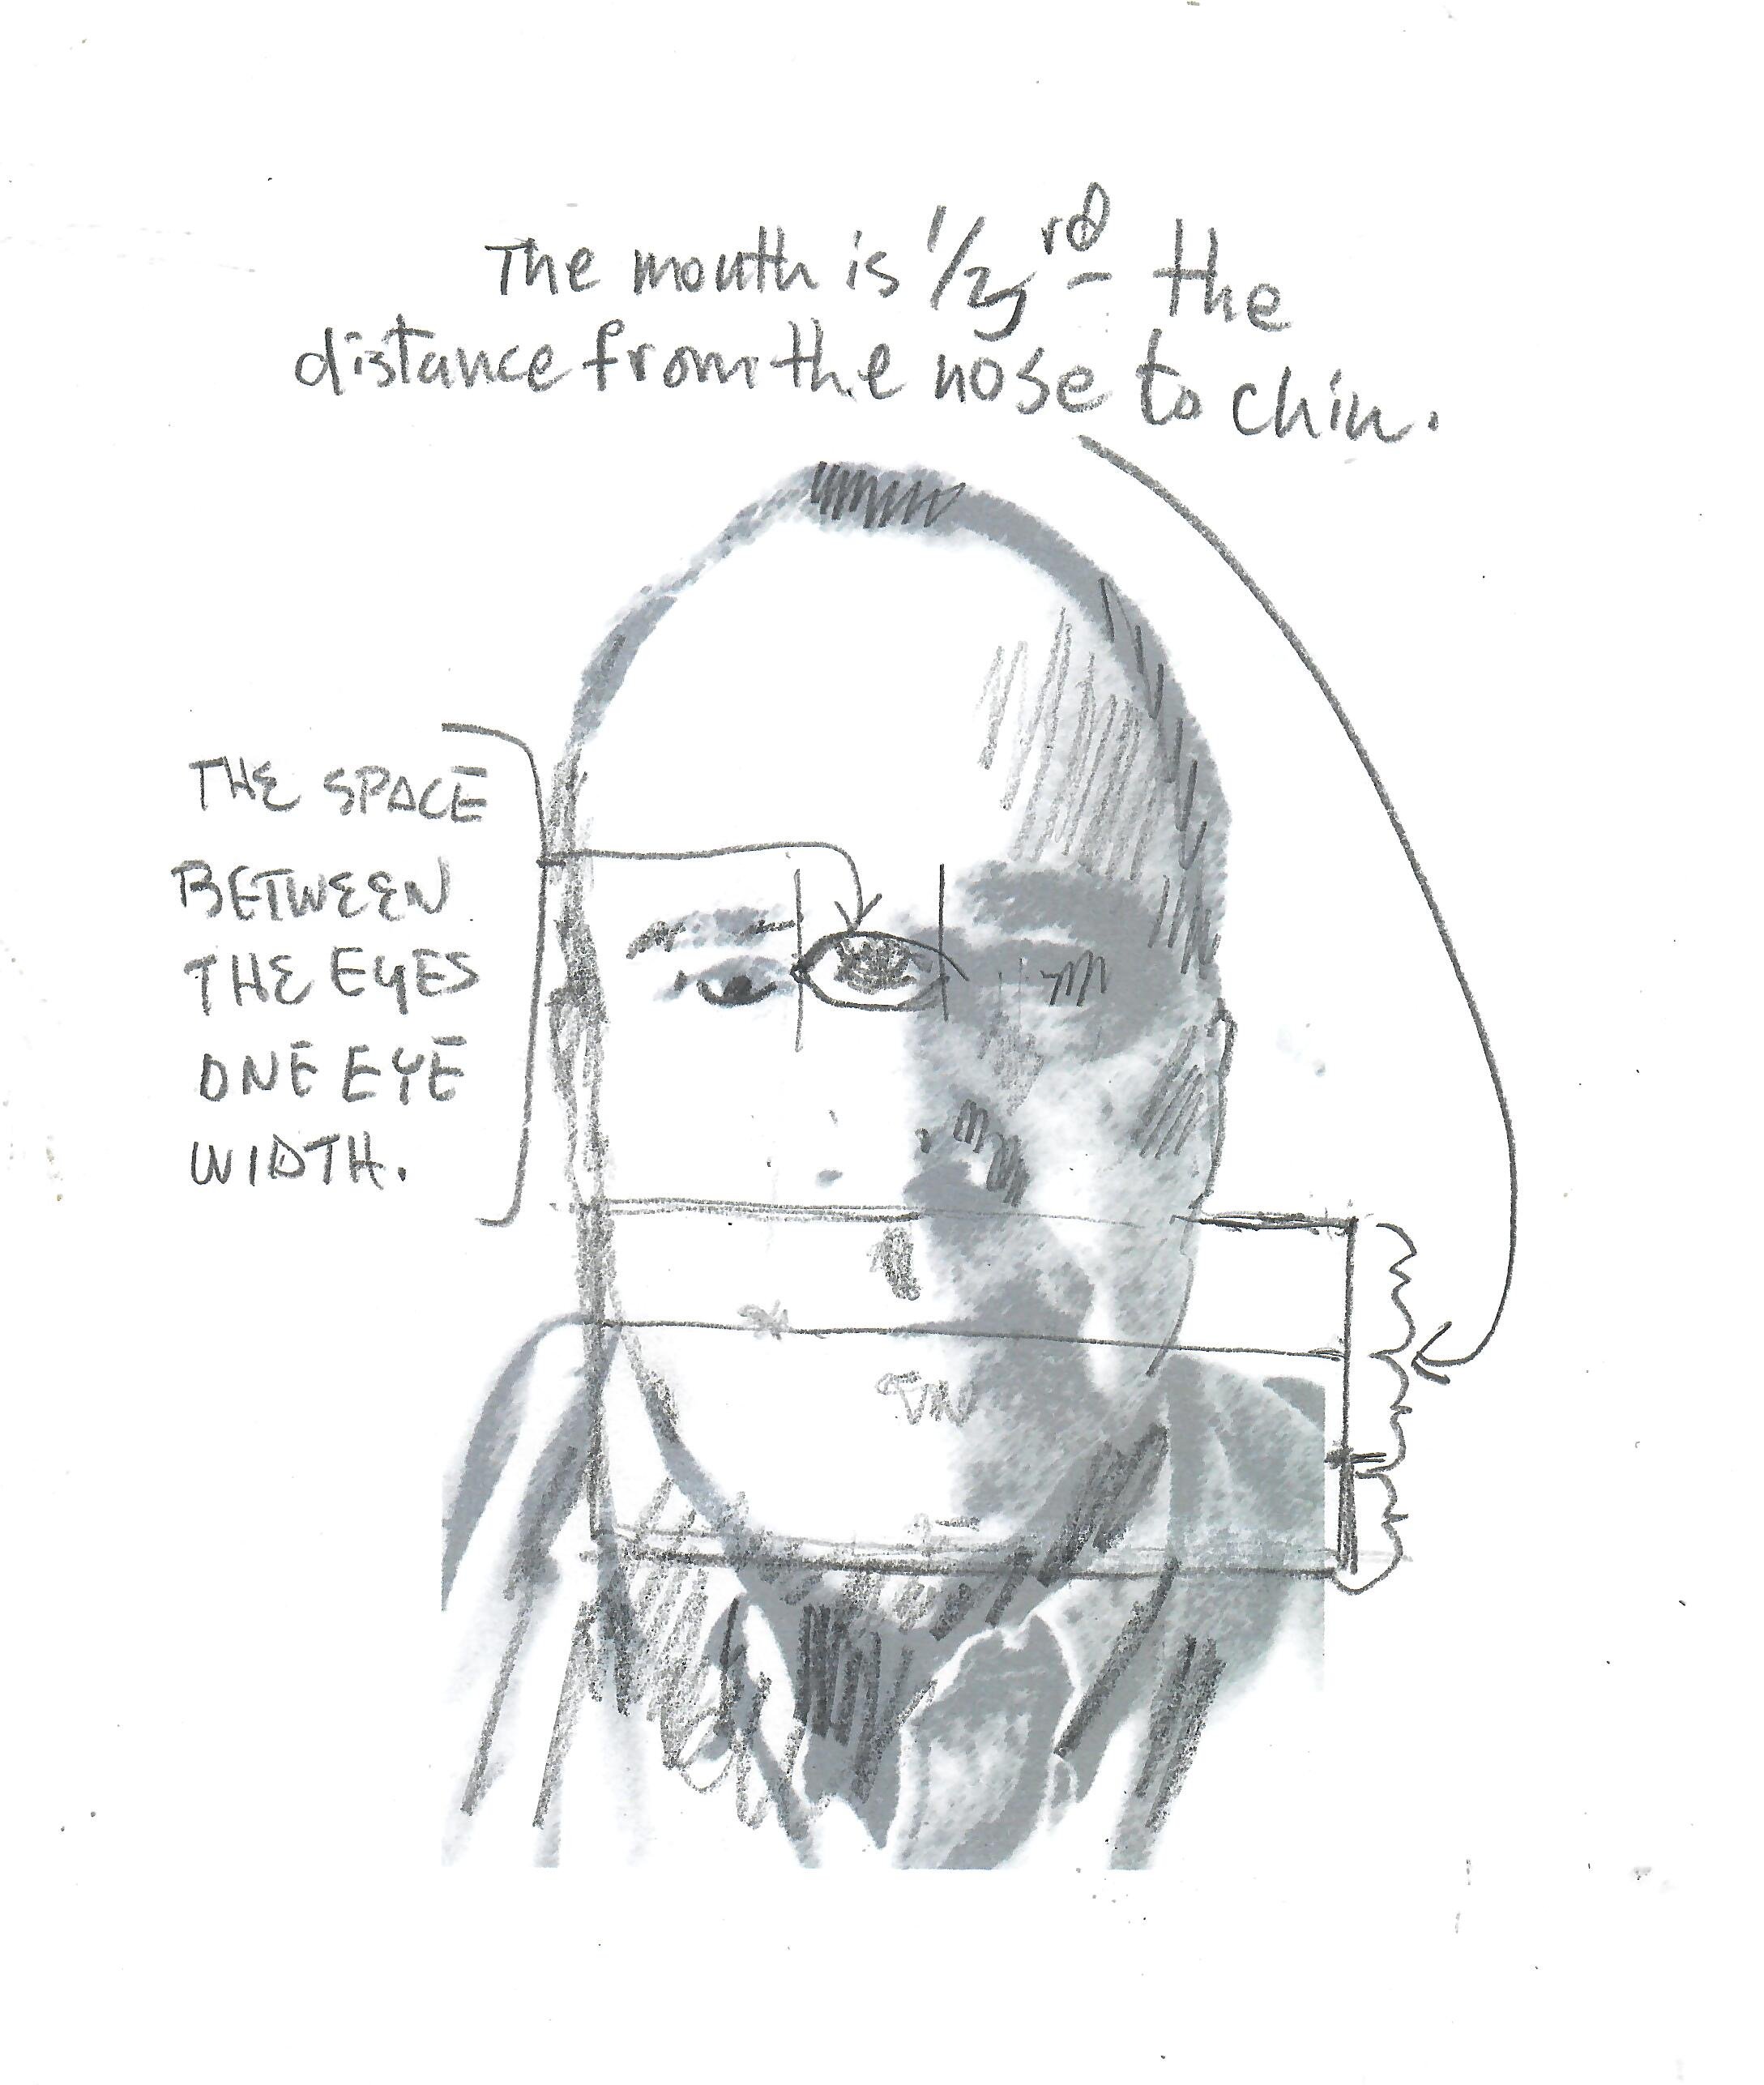 The mouth is 1/3rd the
distance from the nose to chin.
THE SPACE
BETWEEN
THE EYES
ONE EYE
WIDTH.